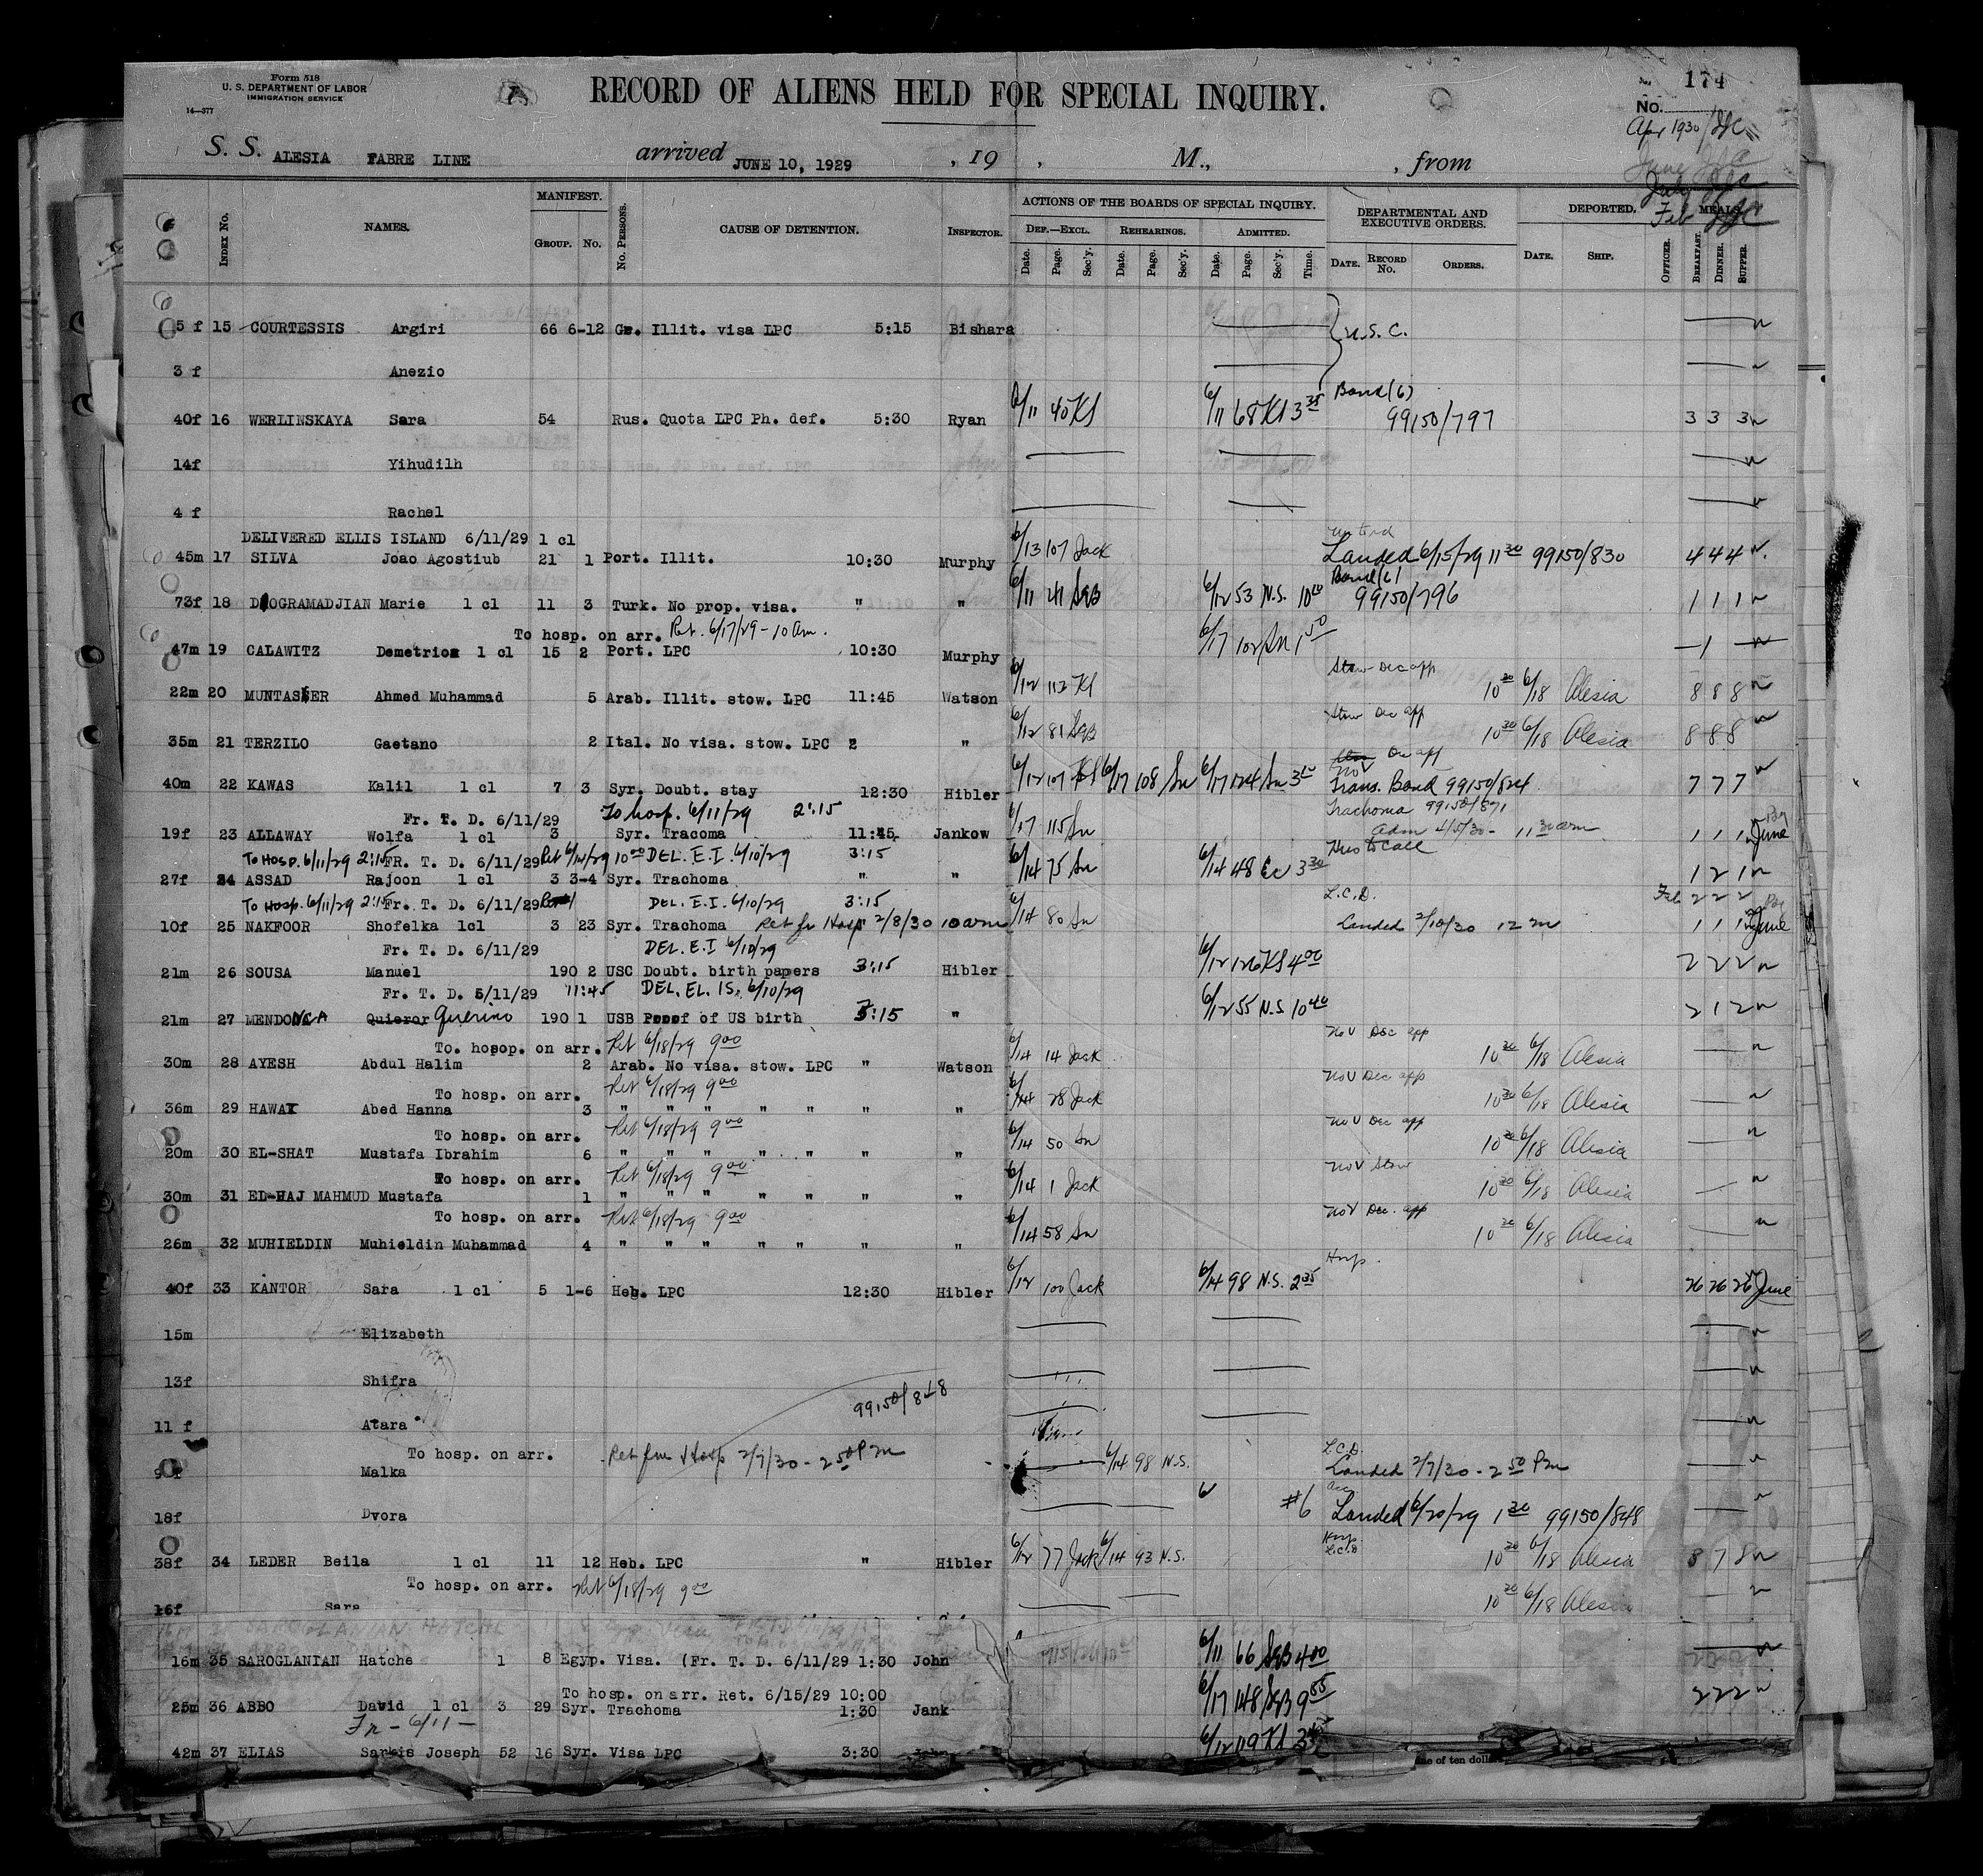 Form 518
U. S. DEPARTMENT OF LABOR
IMMIGRATION SERVICE
14—377
RECORD OF ALIENS HELD FOR SPECIAL INQUIRY.
174
No.
Apr 1930
S. S. ALESIA FABRE LINE arrived JUNE 10, 1929 , 19 , M., , from
July
Feb
INDEX NO. NAMES. MANIFEST. GROUP. NO. NO. PERSONS. CAUSE OF DETENTION. INSPECTOR. ACTIONS OF THE BOARDS OF SPECIAL INQUIRY. DEF.—EXCL. Date. Page. Sec'y. REHEARINGS. Date. Page. Sec'y. ADMITTED. Date. Page. Sec'y. Time. DEPARTMENTAL AND EXECUTIVE ORDERS. DATE. RECORD NO. ORDERS. DEPORTED. DATE. SHIP. OFFICER. MEALS. BREAKFAST. DINNER. SUPPER.
5 f 15 COURTESSIS Argiri 66 6-12 Gr. Illit. visa LPC 5:15 Bishara U.S.C.
3 f Anezio
Bond (6)
40f 16 WERLINSKAYA Sara 54 Rus. Quota LPC Ph. def. 5:30 Ryan 6/11 40 KS 6/11 68 KS 3 35 99150/797 3 3 3
14f Yihudilh
4 f Rachel
DELIVERED ELLIS ISLAND 6/11/29 1 cl
45m 17 SILVA Joao Agostiub 21 1 Port. Illit. 10:30 Murphy 6/13 107 Jack Landed 6/15/29 11 30 99150/830 4 4 4
Bond (6)
73f 18 DOGRAMADJIAN Marie 1 cl 11 3 Turk. No prop. visa. " " 6/11 41 SgB 6/12 53 N.S. 10 20 99150/796 1 1 1
To hosp. on arr. Ret. 6/17/29 - 10 am.
47m 19 CALAWITZ Demetrios 1 cl 15 2 Port. LPC 10:30 Murphy 6/17 102 Sn 1 50 1
Stow Dec app
22m 20 MUNTASSER Ahmed Muhammad 5 Arab. Illit. stow. LPC 11:45 Watson 6/12 113 KS 10 30 6/18 Alesia 8 8 8
Stow Dec app
35m 21 TERZILO Gaetano 2 Ital. No visa. stow. LPC " " 6/12 81 SgB 10 30 6/18 Alesia 8 8 8
Dec app
Nov
40m 22 KAWAS Kalil 1 cl 7 3 Syr. Doubt. stay 12:30 Hibler 6/12 107 KS 6/17 108 Sn 6/17 124 Sn 3 10 Trans. Bond 99150/824 7 7 7
Fr. T. D. 6/11/29 To hosp. 6/11/29 2:15 Trachoma 99150/871
19f 23 ALLAWAY Wolfa 1 cl 3 Syr. Tracoma 11:45 Jankow 6/17 115 Sn Adm 4/5/30 - 11 30 am 1 1 1 June
To HOSP. 6/11/29 2:15 FR. T. D. 6/11/29 Ret 6/14/29 10 00 DEL. E.I. 6/10/29 3:15 Hus to call
27f 24 ASSAD Rajoon 1 cl 3 3-4 Syr. Trachoma " " 6/14 75 Sn 6/14 48 Ec 3 30 1 2 1
To HOSP. 6/11/29 2:15 Fr. T. D. 6/11/29 DEL. E.I. 6/10/29 3:15 L.C.D. Feb 2 2 2
10f 25 NAKFOOR Shofelka 1cl 3 23 Syr. Trachoma Ret fr Hosp 2/8/30 10 am 6/14 80 Sn Landed 2/10/30 12 m 1 1 1 June
Fr. T. D. 6/11/29 DEL. E.I 6/10/29
21m 26 SOUSA Manuel 190 2 USC Doubt. birth papers 3:15 Hibler 6/12 126 KS 4 00 2 2 2
Fr. T. D. 6/11/29 11:45 DEL. EL. IS. 6/10/29
21m 27 MENDONCA Quieror Querino 190 1 USB Proof of US birth 3:15 " 6/12 55 N.S. 10 40 2 1 2
To. hosop. on arr. Ret 6/18/29 9 00 Nov Dec app
30m 28 AYESH Abdul Halim 2 Arab. No visa. stow. LPC " Watson 6/14 14 Jack 10 30 6/18 Alesia
To hosp. on arr. Ret 6/18/29 9 00 Nov Dec app
36m 29 HAWAY Abed Hanna 3 " " " " " " " 6/14 28 Jack 10 30 6/18 Alesia
To hosp. on arr. Ret 6/18/29 9 00 Nov Dec app
20m 30 EL-SHAT Mustafa Ibrahim 6 " " " " " " " 6/14 50 Sn 10 30 6/18 Alesia
To hosp. on arr. Ret 6/18/29 9 00 Nov Stow
30m 31 EL-HAJ MAHMUD Mustafa 1 " " " " " " " 6/14 1 Jack 10 30 6/18 Alesia
To hosp. on arr. Ret 6/18/29 9 00 Nov Dec. app
26m 32 MUHIELDIN Muhieldin Muhammad 4 " " " " " " " 6/14 58 Sn 10 30 6/18 Alesia
Hosp.
40f 33 KANTOR Sara 1 cl 5 1-6 Heb. LPC 12:30 Hibler 6/12 100 Jack 6/14 98 N.S. 2 35 26 26 26 June
15m Elizabeth
13f Shifra
99150/848
11 f Atara
To hosp. on arr. Ret frm Hosp 2/7/30 - 2 50 Pm 6/14 98 N.S. L.C.D.
9 f Malka Landed 2/7/30 - 2 50 Pm
18f Dvora #6 Landed 6/20/29 1 30 99150/848
Hosp
L.C.D
38f 34 LEDER Beila 1 cl 11 12 Heb. LPC " Hibler 6/12 77 Jack 6/14 93 N.S. 10 30 6/18 Alesia 8 7 8
To hosp. on arr. Ret 6/18/29 9 00
16f Sara 10 30 6/18 Alesia
16m 35 SAROGLANIAN Hatche 1 8 Egyp. Visa. (Fr. T. D. 6/11/29 1:30 John 6/11 66 SgB 4 00
To hosp. on arr. Ret. 6/15/29 10:00
25m 36 ABBO David 1 cl 3 29 Syr. Trachoma 1:30 Jank 6/17 148 SgB 9 55 2 2 2
Fr - 6/11 -
42m 37 ELIAS Sarkis Joseph 52 16 Syr. Visa LPC 3:30 John 6/12 119 KS
of ten dollars